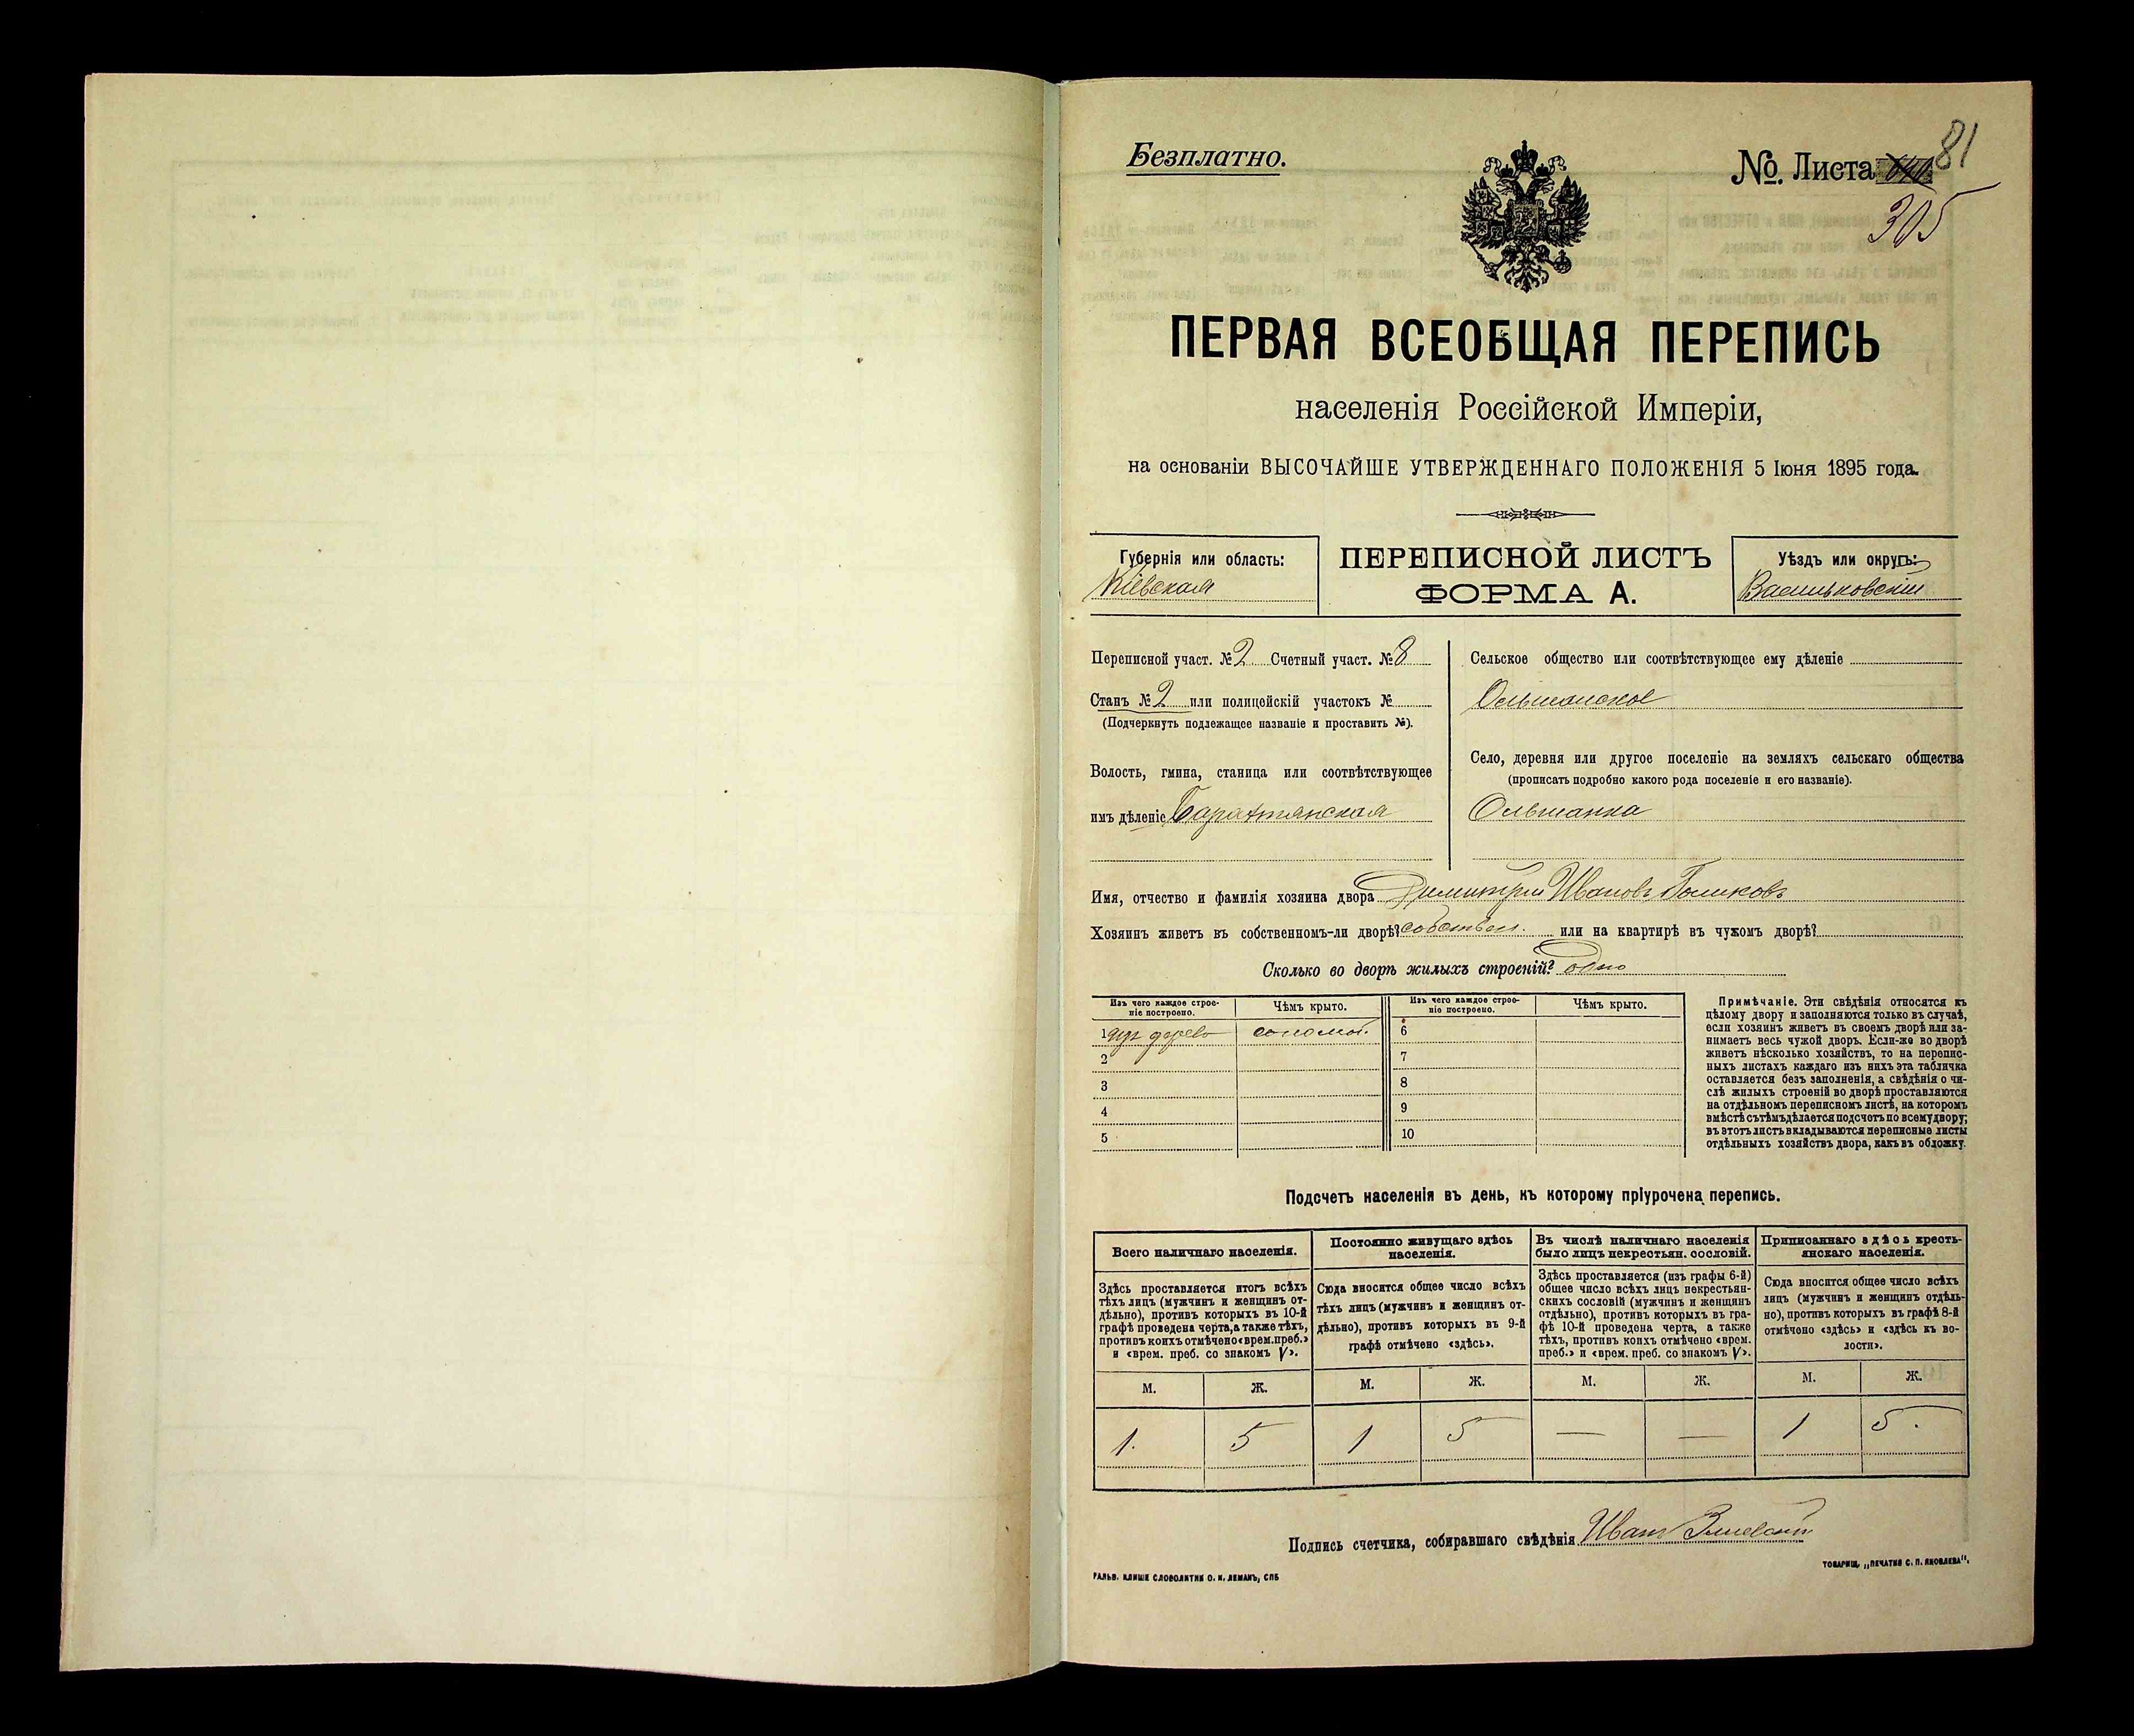 Безплатно.
№. Листа 81
305
ПЕРВАЯ ВСЕОБЩАЯ ПЕРЕПИСЬ
населенія Россійской Имперіи,
на основаніи ВЫСОЧАЙШЕ УТВЕРЖДЕННАГО ПОЛОЖЕНІЯ 5 Іюня 1895 года.
Губернія или область:
Кіевская
ПЕРЕПИСНОЙ ЛИСТЪ
ФОРМА А.
Уѣздъ или округъ:
Васильковскій
Переписной участ. № 2 Счетный участ. № 8
Станъ № 2 или полицейскій участокъ №
(Подчеркнуть подлежащее названіе и проставить №).
Волость, гмина, станица или соотвѣтствующее
имъ дѣленіе Барахтянская
Сельское общество или соотвѣтствующее ему дѣленіе
Ольшанское
Село, деревня или другое поселеніе на земляхъ сельскаго общества
(прописать подробно какого рода поселеніе и его названіе).
Ольшанка
Имя, отчество и фамилія хозяина двора Димитрій Ивановъ
Хозяинъ живетъ въ собственномъ-ли дворѣ? собствен. или на квартирѣ въ чужомъ дворѣ?
Сколько во дворѣ жилыхъ строеній? одно
Изъ чего каждое строе-
ніе построено.
Чѣмъ крыто.
Изъ чего каждое строе-
ніе построено.
Чѣмъ крыто.
1 дерево соломой. 6
2 7
3 8
4 9
5 10
Примѣчаніе. Эти свѣдѣнія относятся къ
цѣлому двору и заполняются только въ случаѣ,
если хозяинъ живетъ въ своемъ дворѣ или за-
нимаетъ весь чужой дворъ. Если-же во дворѣ
живетъ нѣсколько хозяйствъ, то на перепис-
ныхъ листахъ каждаго изъ нихъ эта табличка
оставляется безъ заполненія, а свѣдѣнія о чи-
слѣ жилыхъ строеній во дворѣ проставляются
на отдѣльномъ переписномъ листѣ, на которомъ
вмѣстѣ съ тѣмъ дѣлается подсчетъ по всему двору;
въ этотъ листъ вкладываются переписные листы
отдѣльныхъ хозяйствъ двора, какъ въ обложку.
Подсчетъ населенія въ день, къ которому пріурочена перепись.
Всего наличнаго населенія.
Здѣсь проставляется итогъ всѣхъ
тѣхъ лицъ (мужчинъ и женщинъ от-
дѣльно), противъ которыхъ въ 10-й
графѣ проведена черта, а также тѣхъ,
противъ коихъ отмѣчено «врем. преб.»
и «врем. преб. со знакомъ V».
Постоянно живущаго здѣсь
населенія.
Сюда вносится общее число всѣхъ
тѣхъ лицъ (мужчинъ и женщинъ от-
дѣльно), противъ которыхъ въ 9-й
графѣ отмѣчено «здѣсь».
Въ числѣ наличнаго населенія
было лицъ некрестьян. сословій.
Здѣсь проставляется (изъ графы 6-й)
общее число всѣхъ лицъ некрестьян-
скихъ сословій (мужчинъ и женщинъ
отдѣльно), противъ которыхъ въ гра-
фѣ 10-й проведена черта, а также
тѣхъ, противъ коихъ отмѣчено «врем.
преб.» и «врем. преб. со знакомъ V».
Приписаннаго здѣсь кресть-
янскаго населенія.
Сюда вносится общее число всѣхъ
лицъ (мужчинъ и женщинъ отдѣль-
но), противъ которыхъ въ графѣ 8-й
отмѣчено «здѣсь» и «здѣсь къ во-
лости».
М. Ж. М. Ж. М. Ж. М. Ж.
1. 5 1 5 — — 1 5.
Подпись счетчика, собиравшаго свѣдѣнія Иванъ
ГАЛЬВ. КЛИШЕ СЛОВОЛИТНИ О. И. ЛЕМАНЪ, СПБ
ТОВАРИЩ. „ПЕЧАТНЯ С. П. ЯКОВЛЕВА“.